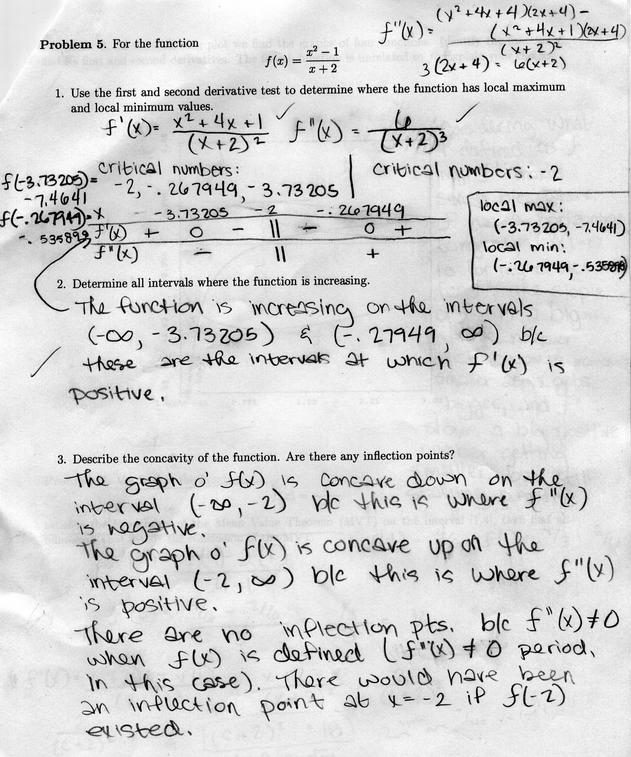 f''(x) = (x² + 4x + 4)(2x+4) −
(x² + 4x + 1)(2x+4)
(x + 2)²
3(2x + 4) = 6(x+2)
Problem 5. For the function
f(x) = (x² − 1)/(x + 2)
1. Use the first and second derivative test to determine where the function has local maximum
and local minimum values.
f'(x) = (x² + 4x + 1)/(x+2)² f''(x) = 6/(x+2)³
critical numbers:
-2, -.267949, -3.73205
critical numbers: -2
f(-3.73205) =
-7.4641
f(-.267949) =
-.535898
x -3.73205 -2 -.267949
f'(x) + 0 − || − 0 +
f''(x) − || +
local max:
(-3.73205, -7.4641)
local min:
(-.267949, -.535898)
2. Determine all intervals where the function is increasing.
The function is increasing on the intervals
(-∞, -3.73205) & (-.27949, ∞) b/c
these are the intervals at which f'(x) is
positive.
3. Describe the concavity of the function. Are there any inflection points?
The graph o' f(x) is concave down on the
interval (-∞, -2) b/c this is where f''(x)
is negative.
The graph o' f(x) is concave up on the
interval (-2, ∞) b/c this is where f''(x)
is positive.
There are no inflection pts. b/c f''(x) ≠ 0
when f(x) is defined (f''(x) ≠ 0 period,
in this case). There would have been
an inflection point at x = -2 if f(-2)
existed.